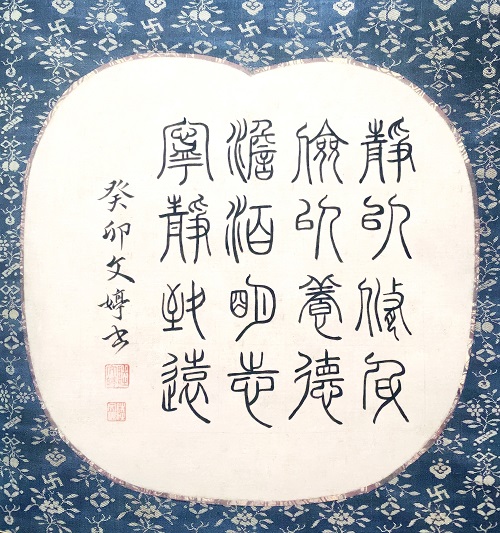 靜以修身
儉以養德
澹泊明志
寧靜致遠
癸卯文婷書